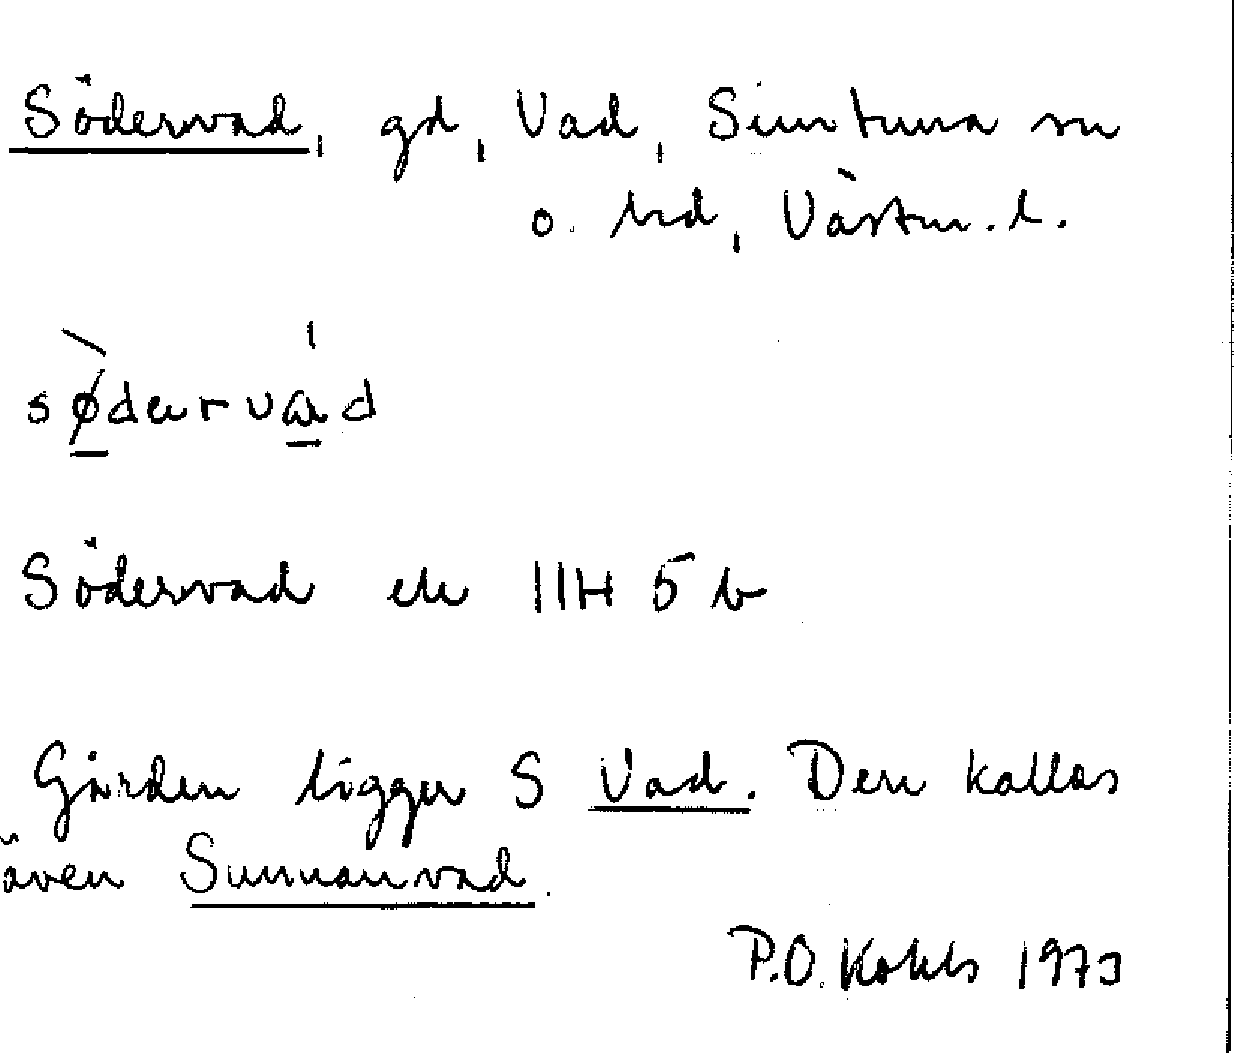 Södervad, gd, Vad, Simtuna sn
o. hd, Västm. l.
sø̀därvàd
Södervad ek 11H 5b
Gården ligger S Vad. Den kallas
även Sunnanvad.
P.O. Kohls 1973